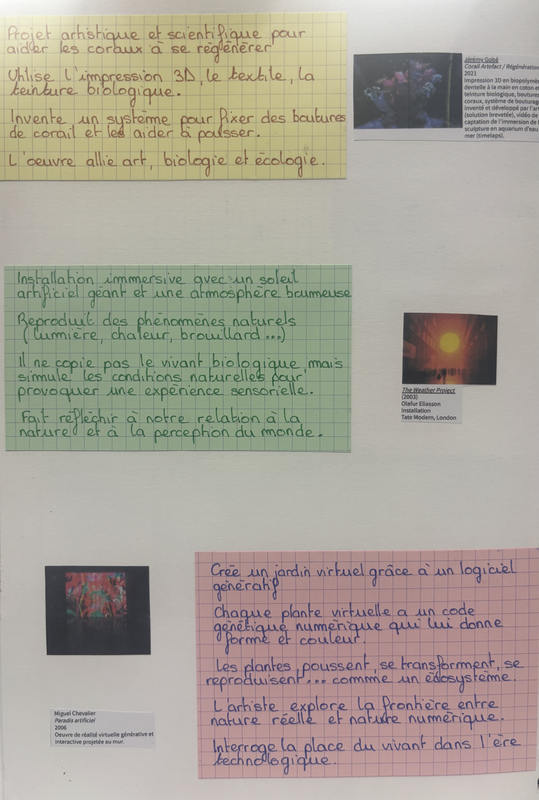 Projet artistique et scientifique pour
aider les coraux à se régénérer
Utilise l'impression 3D, le textile, la
teinture biologique.
Invente un système pour fixer des boutures
de corail et les aider à pousser.
L'oeuvre allie art, biologie et écologie.
Jérémy Gobé
Corail Artefact / Régénération
2021
Impression 3D en biopolymère
dentelle à la main en coton et
teinture biologique, boutures
coraux, système de bouturage
inventé et développé par l'art
(solution brevetée), vidéo de
captation de l'immersion de l
sculpture en aquarium d'eau
mer (timelaps).
Installation immersive avec un soleil
artificiel géant et une atmosphère brumeuse
Reproduit des phénomènes naturels
(lumière, chaleur, brouillard...)
Il ne copie pas le vivant biologique, mais
simule les conditions naturelles pour
provoquer une expérience sensorielle.
Fait réfléchir à notre relation à la
nature et à la perception du monde.
The Weather Project
(2003)
Olafur Eliasson
Installation
Tate Modern, London
Crée un jardin virtuel grâce à un logiciel
génératif
Chaque plante virtuelle a un code
génétique numérique qui lui donne
forme et couleur.
Les plantes poussent, se transforment, se
reproduisent... comme un écosystème.
L'artiste explore la frontière entre
nature réelle et nature numérique.
Interroge la place du vivant dans l'ère
technologique.
Miguel Chevalier
Paradis artificiel
2006
Oeuvre de réalité virtuelle générative et
interactive projetée au mur.